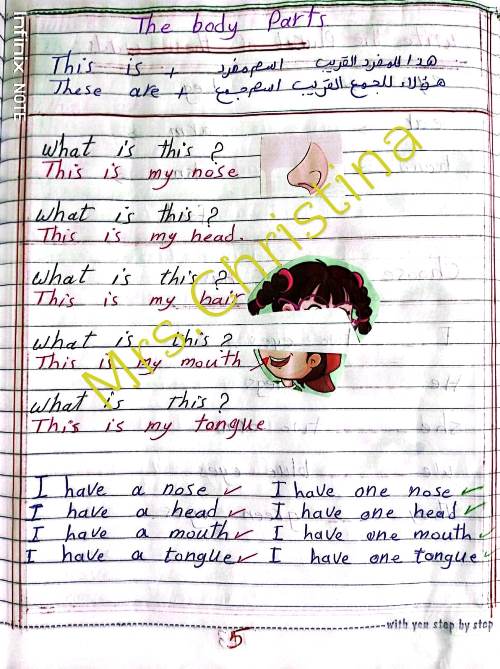 The body Parts
This is + اسم مفرد هذا للمفرد القريب
These are + هؤلاء للجمع القريب اسم جمع
What is this ?
This is my nose
What is this ?
This is my head.
What is this ?
This is my hair
What is this ?
This is my mouth
What is This ?
This is my tongue
I have a nose ✓ I have one nose ✓
I have a head ✓ I have one head ✓
I have a mouth ✓ I have one mouth ✓
I have a tongue ✓ I have one tongue ✓
with you step by step
5
Mrs. Christina
Infinix NOTE